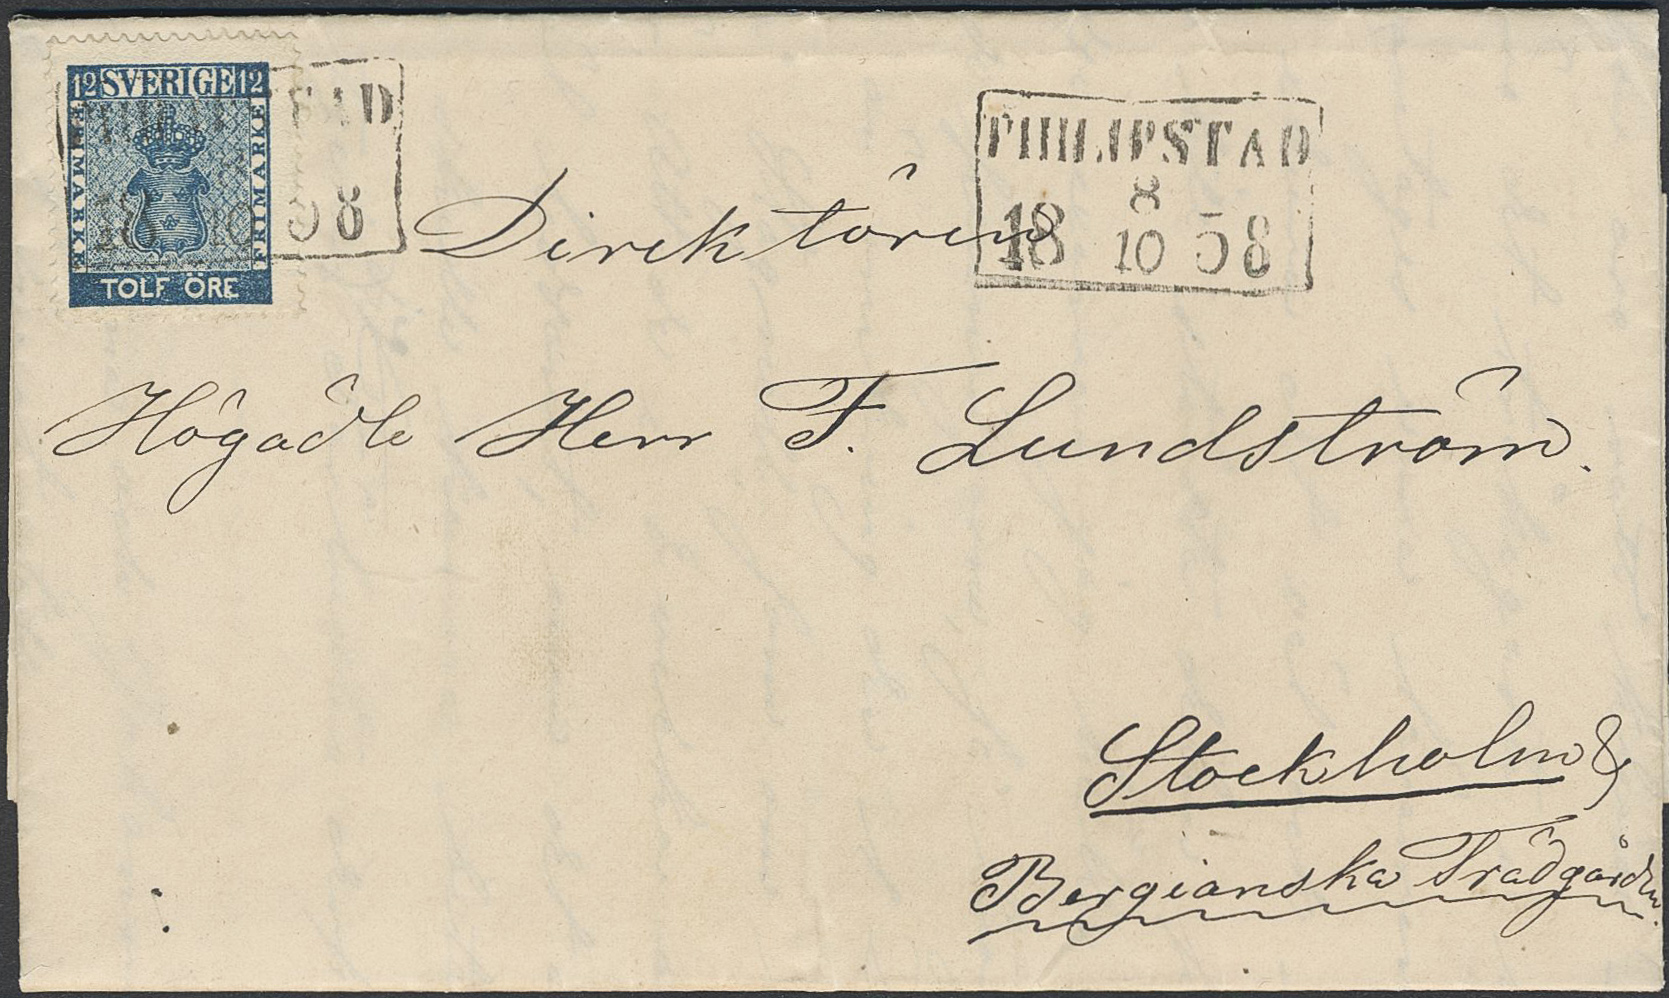 12 SVERIGE 12
FRIMÄRKE
FRIMARKE
TOLF ÖRE
STAD
18 10 58
PHILIPSTAD
8
18 10 58
Direktören
Högädle Herr F. Lundström.
Stockholm &
Bergianska Trädgården.